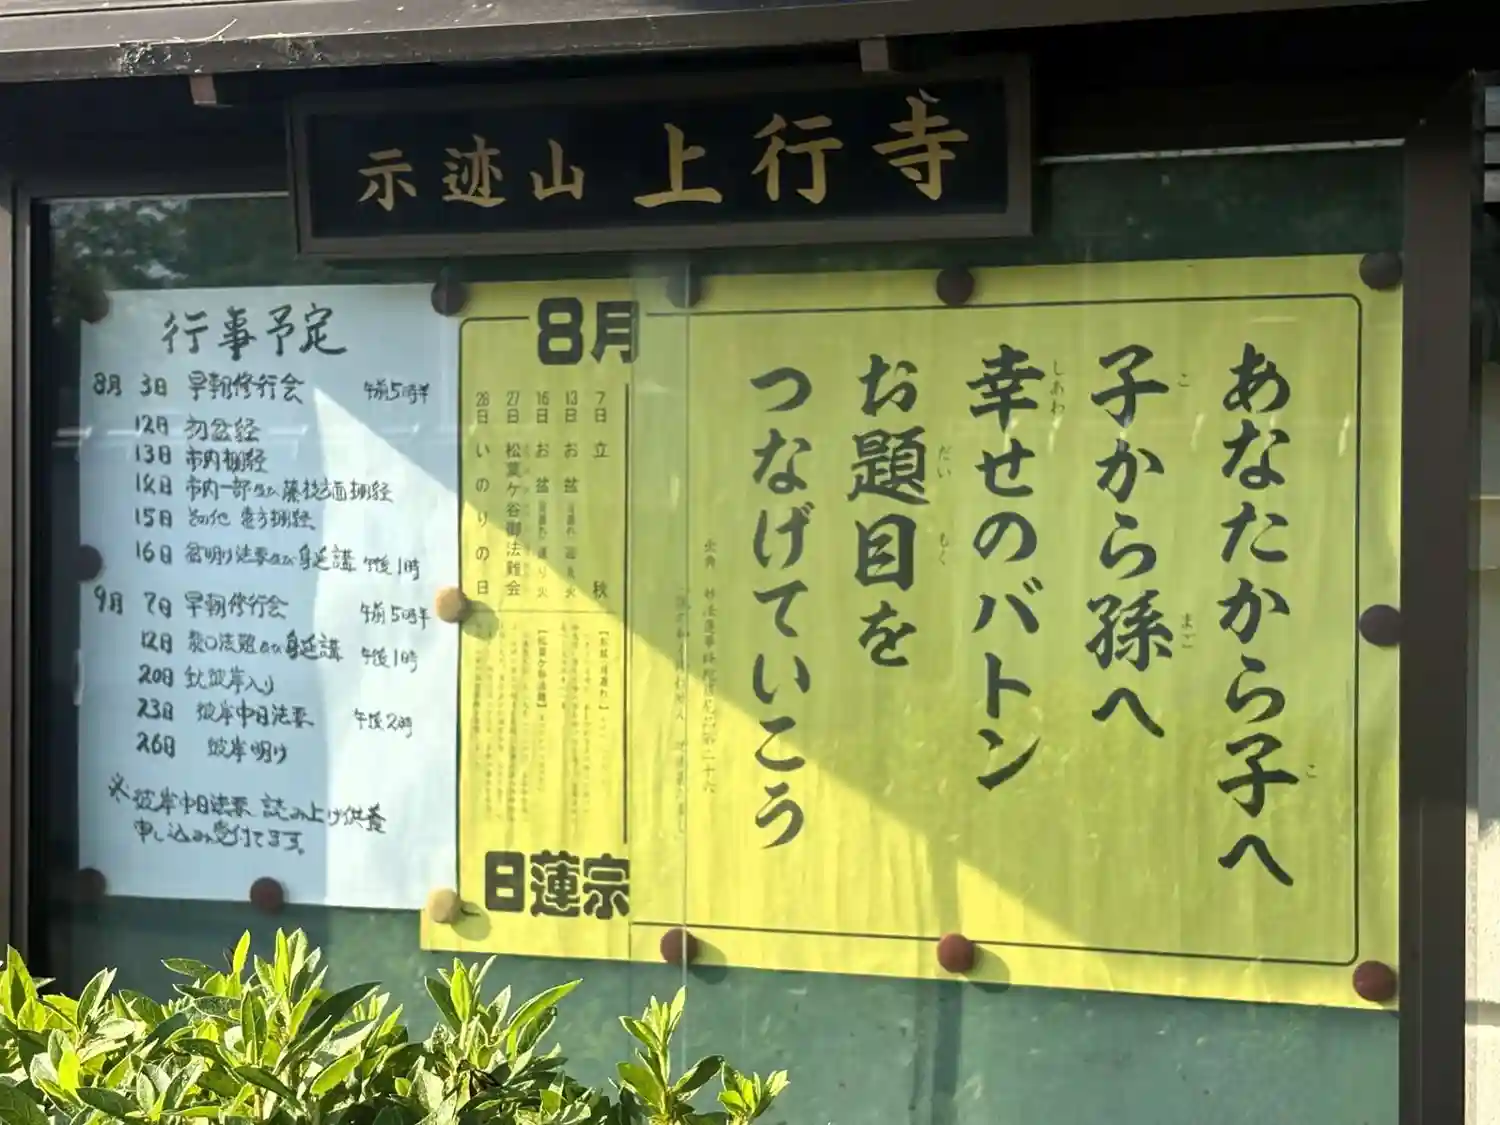 示迹山 上行寺
行事予定
8月 3日 早朝修行会 午前5時半
12日 初盆経
13日 市内棚経
14日 市内一部及び藤枝方面棚経
15日 その他 遠方棚経
16日 盆明け法要及び身延講 午後1時
9月 7日 早朝修行会 午前5時半
12日 龍口法難及び身延講 午後1時
20日 秋彼岸入り
23日 彼岸中日法要 午後2時
26日 彼岸明け
※彼岸中日法要 読み上げ供養
申し込み受付てます。
あなたから子へ
子から孫へ
幸せのバトン
お題目を
つなげていこう
こ
こ
まご
しあわ
だいもく
8月
7日 立秋
13日 お盆
16日 お盆
27日 松葉ケ谷御法難会
28日 いのりの日
日蓮宗